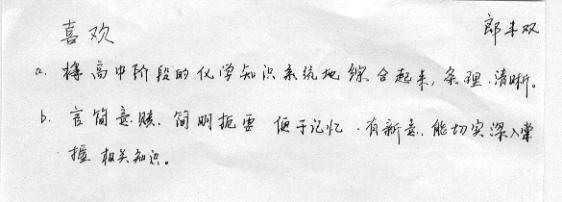 喜欢
郎丰双
a. 将高中阶段的化学知识系统地综合起来,条理.清晰。
b. 言简意赅.简明扼要 便于记忆.有新意.能切实深入掌
握相关知识。